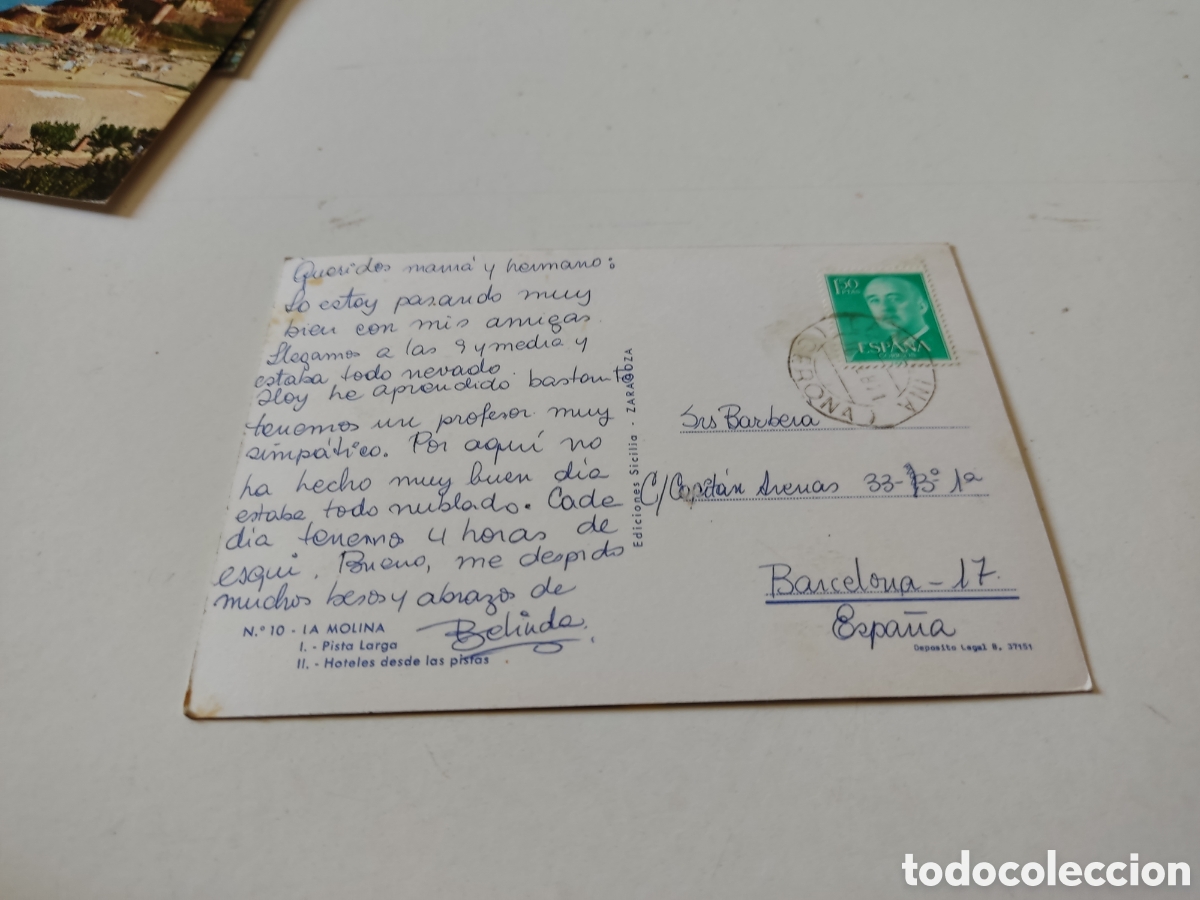 Queridos mamá y hermano:
Lo estoy pasando muy
bien con mis amigas.
Llegamos a las 9 y media y
estaba todo nevado.
Hoy he aprendido bastante
tenemos un profesor muy
simpático. Por aquí no
ha hecho muy buen día
estaba todo nublado. Cade
día tenemos 4 horas de
esqui. Bueno, me despido
muchos besos y abrazos de
Belinda.
N.º 10 - LA MOLINA
I. - Pista Larga
II. - Hoteles desde las pistas
Ediciones Sicilia - ZARAGOZA
1,50
PTAS
ESPAÑA
CORREOS
(GERONA)
Srs Barbera
C/ Capitán Arenas 33- 3º 1ª
Barcelona - 17
España
Deposito Legal B. 37151
todocoleccion